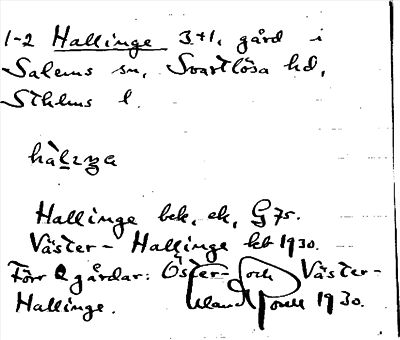 1-2 Hallinge 3+1, gård i
Salems sn, Svartlösa hd,
Sthlms l.
Hallinge bek, ek, G75.
Väster- Hallinge kbt 1930.
Förr 2 gårdar: Öster- och Väster-
Hallinge. 1930.